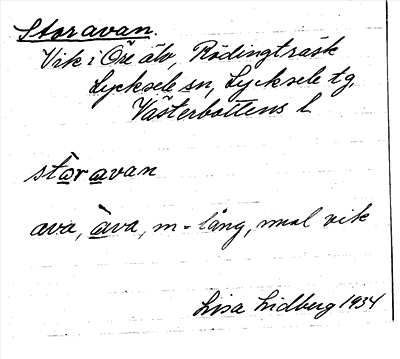 Storavan.
Vik i Öre älv, Rödingträsk
Lycksele sn, Lycksele tg,
Västerbottens l
stòravan
ava, àva, m - lång, smal vik
Lisa Lidberg 1934